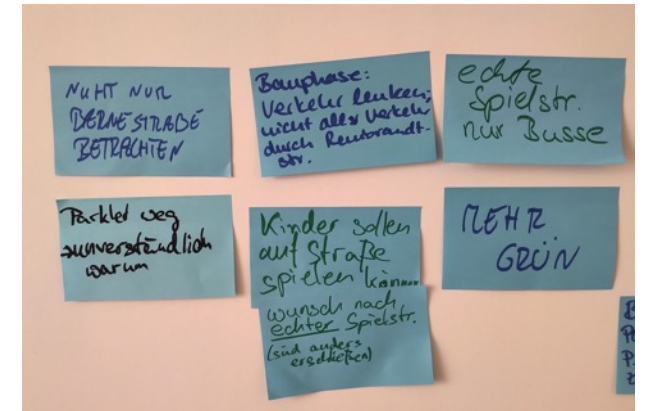 NICHT NUR
BERNESTRAßE
BETRACHTEN
Bauphase:
Verkehr lenken;
nicht aller Verkehr
durch Rembrandt-
str.
echte
Spielstr.
nur Busse
Parklet weg
unverständlich
warum
Kinder sollen
auf Straße
spielen können
wunsch nach
echter Spielstr.
(sind anders
erschließen)
MEHR
GRÜN